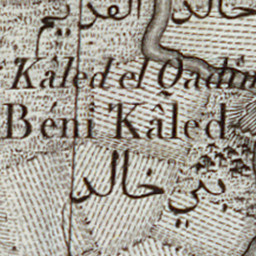 خالد القديم
Kâled el Qadîm
Béni Kâled
بني خالد